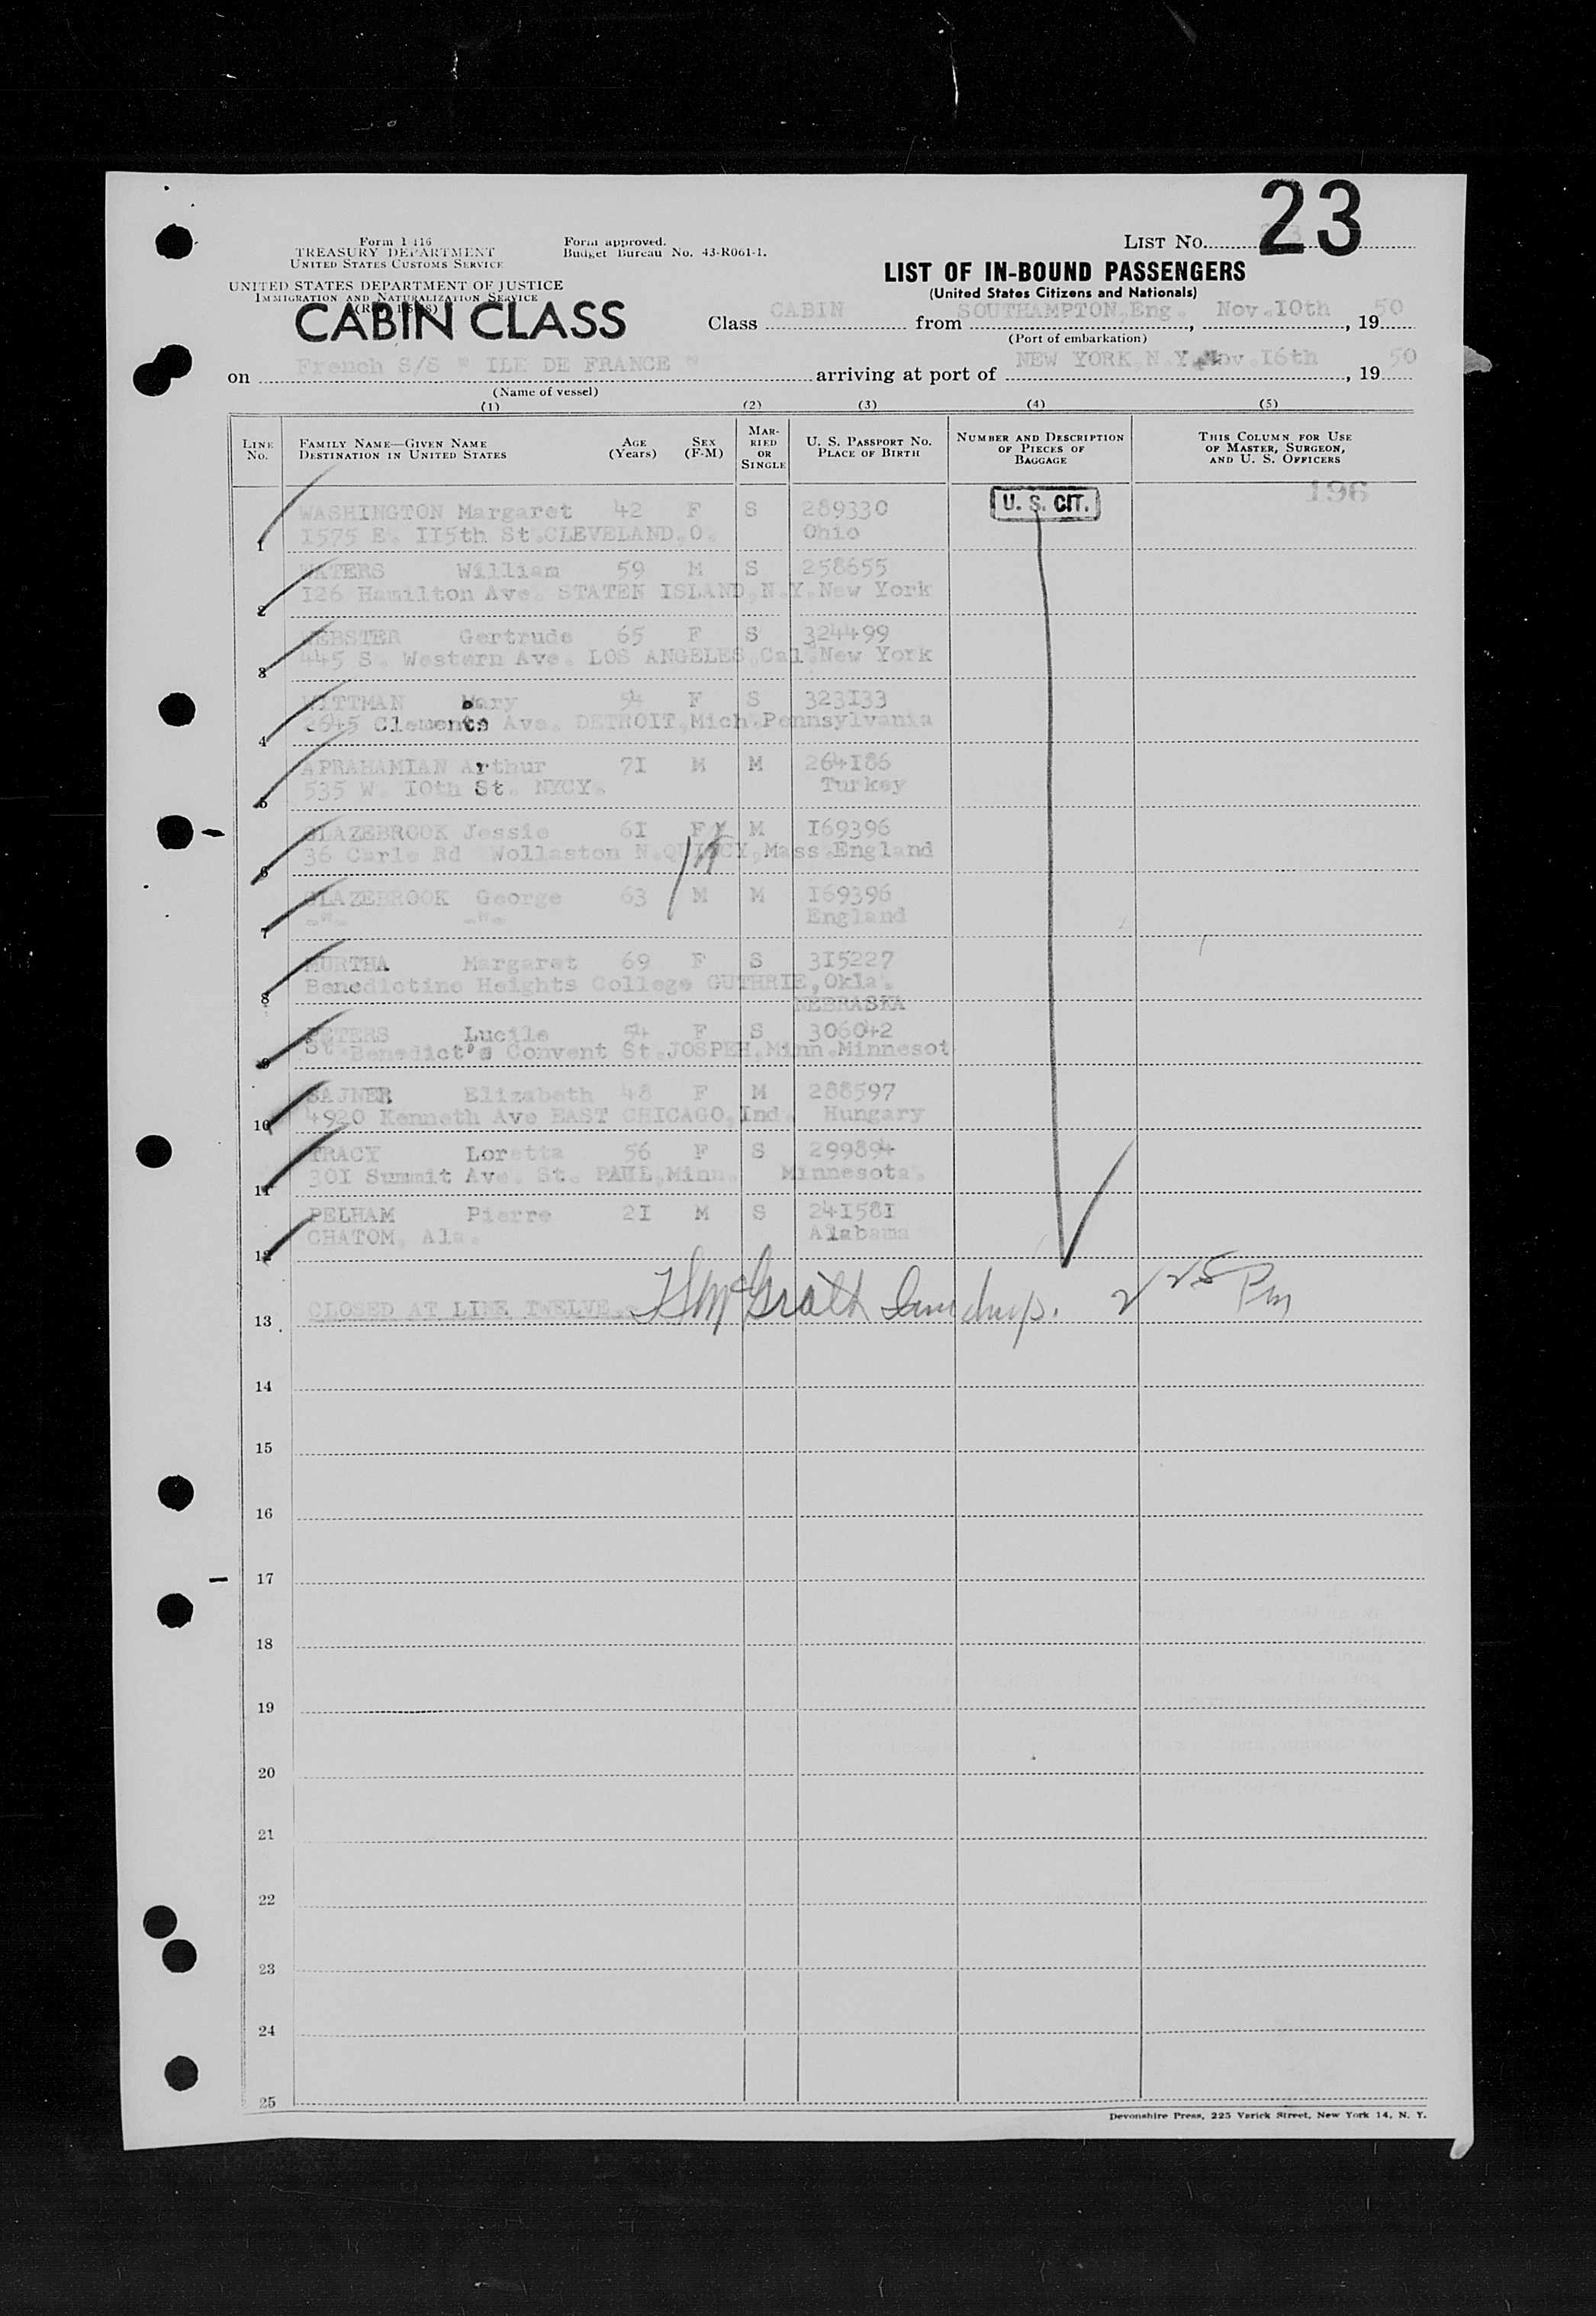 23
Form I 416
TREASURY DEPARTMENT
UNITED STATES CUSTOMS SERVICE
Form approved.
Budget Bureau No. 43-R061-1.
LIST NO.
UNITED STATES DEPARTMENT OF JUSTICE
IMMIGRATION AND NATURALIZATION SERVICE
CABIN CLASS
LIST OF IN-BOUND PASSENGERS
(United States Citizens and Nationals)
Class CABIN from SOUTHAMPTON,Eng. , Nov.10th , 1950
(Port of embarkation)
on French S/S " ILE DE FRANCE " arriving at port of NEW YORK,N.Y. Nov.16th , 1950
(Name of vessel)
(1) (2) (3) (4) (5)
LINE No. FAMILY NAME—GIVEN NAME DESTINATION IN UNITED STATES AGE (Years) SEX (F-M) MARRIED OR SINGLE U. S. PASSPORT NO. PLACE OF BIRTH NUMBER AND DESCRIPTION OF PIECES OF BAGGAGE THIS COLUMN FOR USE OF MASTER, SURGEON, AND U. S. OFFICERS
196
WASHINGTON Margaret 42 F S 289330 U. S. CIT.
1 1575 E. 115th St.CLEVELAND,O. Ohio
WATERS William 59 M S 258655
2 126 Hamilton Ave. STATEN ISLAND,N.Y.New York
WEBSTER Gertrude 65 F S 324499
3 445 S. Western Ave. LOS ANGELES,Cal.New York
WITTMAN Mary 54 F S 323133
4 2645 Clements Ave. DETROIT,Mich.Pennsylvania
APRAHAMIAN Arthur 71 M M 264186
5 535 W. 10th St. NYCY. Turkey
GLAZEBROOK Jessie 61 F M 169396
6 36 Carle Rd Wollaston N.QUINCY,Mass.England
GLAZEBROOK George 63 M M 169396
7 -"- -"- England
MURTHA Margaret 69 F S 315227
8 Benedictine Heights College GUTHRIE,Okla.
NEBRASKA
PETERS Lucile 54 F S 306042
9 St.Benedict's Convent St.JOSPEH,Minn.Minnesot
SAJNER Elizabeth 48 F M 288597
10 4920 Kenneth Ave EAST CHICAGO,Ind. Hungary
TRACY Loretta 56 F S 299894
11 301 Summit Ave. St. PAUL,Minn. Minnesota.
PELHAM Pierre 21 M S 241581
12 CHATOM, Ala. Alabama
13 CLOSED AT LINE TWELVE McGrath 225 Pm
14
15
16
17
18
19
20
21
22
23
24
25
Devonshire Press, 225 Varick Street, New York 14, N. Y.